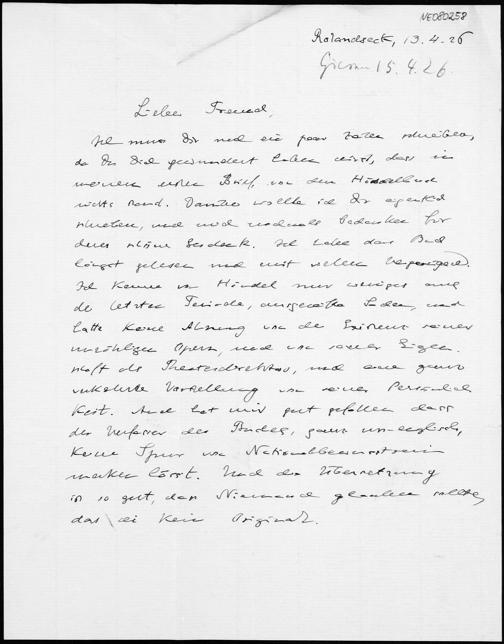 NE080258
Rolandseck, 13.4.26
15.4.26.
Lieber Freund,
Ich muss Dir noch ein paar Zeilen schreiben,
da Du Dich gewundert haben wirst, dass in
meinem ersten Brief, von dem Händelbuch
nichts stand. Darüber wollte ich Dir eigentlich
schreiben, und mich nochmals bedanken für
dieses schöne Geschenk. Ich habe das Buch
längst gelesen und mit vielem Vergnügen.
Ich kenne von Händel nur weniges aus
der letzten Periode, ausgewählte Sachen, und
hatte keine Ahnung von der Existenz seiner
unzähligen Opern, und von seiner Eigen-
schaft als Theaterdirektor, und eine ganz
verkehrte Vorstellung von seiner Persönlich
keit. Auch hat mir gut gefallen dass
der Verfasser des Buches, ganz un-englisch,
keine Spur von Nationalbewusstsein
merken lässt. Und die Übersetzung
ist so gut, dass Niemand glauben sollte,
das sei kein Original.